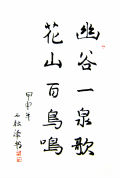 幽谷一泉歌
花山百鳥鳴
甲申年